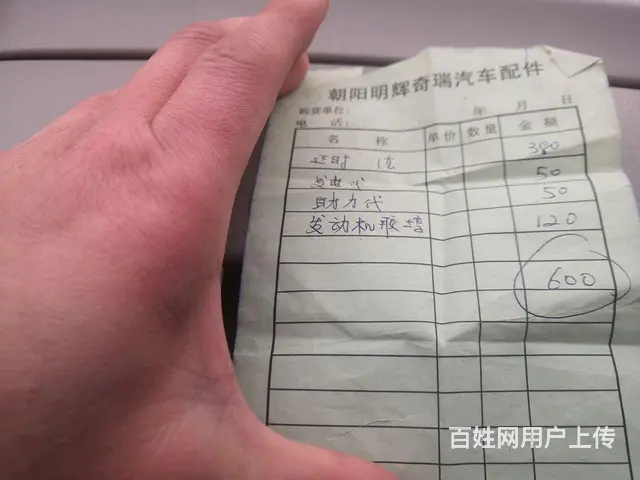 朝阳明辉奇瑞汽车配件
购货单位: 年 月 日
电 话:
名 称 单价 数量 金额
正时 380
发电代 50
助力代 50
发动机胶垫 120
600
百姓网用户上传